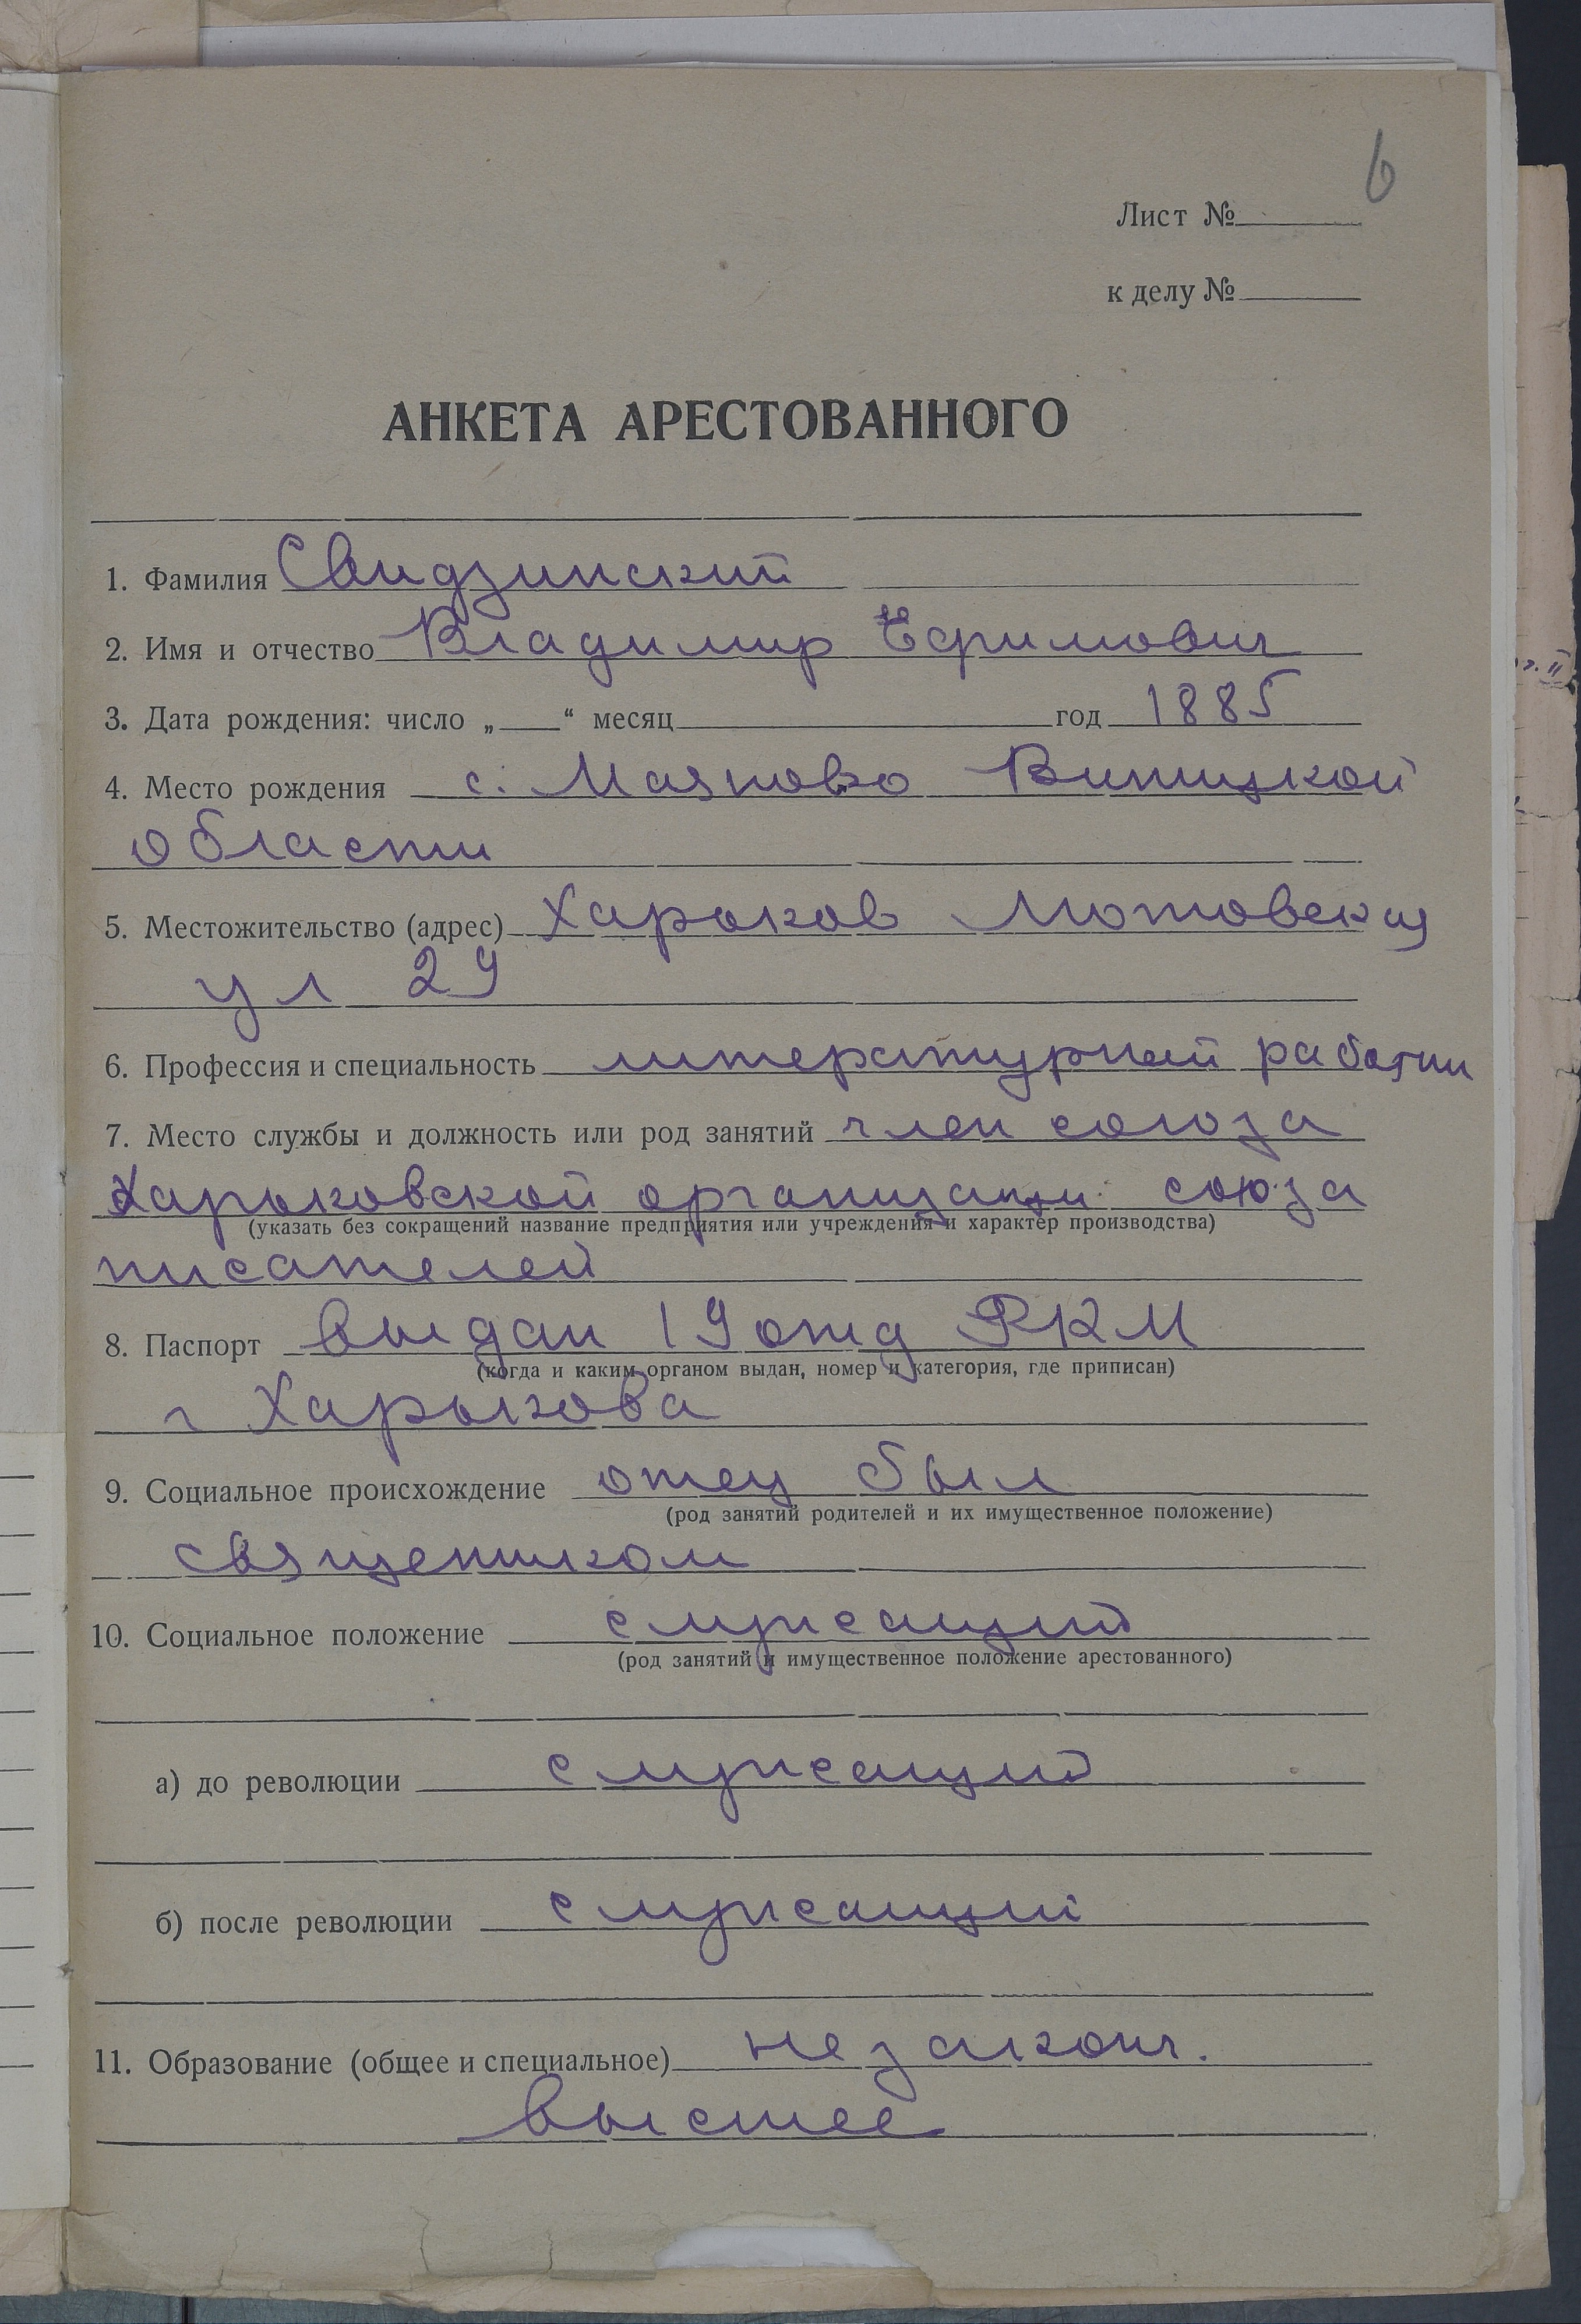 6
Лист №
к делу №
АНКЕТА АРЕСТОВАННОГО
1. Фамилия Свидзинский
2. Имя и отчество Владимир Ефимович
3. Дата рождения: число „ “ месяц год 1885
4. Место рождения с. Маяново Виницкой
области
5. Местожительство (адрес) Харьков Мотовская
ул 29
6. Профессия и специальность литературный работни
7. Место службы и должность или род занятий член союза
Харьковской организации союза
(указать без сокращений название предприятия или учреждения и характер производства)
писателей
8. Паспорт выдан 19 отд РКМ
(когда и каким органом выдан, номер и категория, где приписан)
г Харькова
9. Социальное происхождение отец был
(род занятий родителей и их имущественное положение)
священиком
10. Социальное положение служащий
(род занятий и имущественное положение арестованного)
а) до революции служащий
б) после революции служащий
11. Образование (общее и специальное) незаконч.
высшее